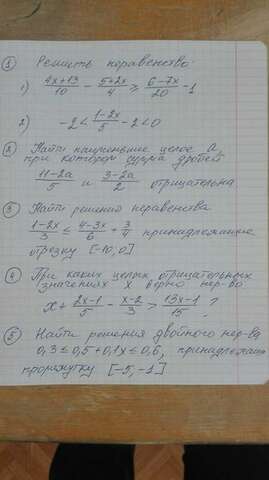 ① Решить неравенство:
1) (4x+13)/10 - (5+2x)/4 ≥ (6-7x)/20 - 1
2) -2 < (1-2x)/5 - 2 < 0
② Найти наименьшее целое a,
при котором сумма дробей
(11-2a)/5 и (3-2a)/2 отрицательна
③ Найти решения неравенства
(1-2x)/3 ≤ (4-3x)/6 + 3/4 принадлежащие
отрезку [-10;0]
④ При каких целых отрицательных
значениях x верно нер-во
x + (2x-1)/5 - (x-2)/3 > (13x-1)/15 ?
⑤ Найти решения двойного нер-ва
0,3 ≤ 0,5+0,1x ≤ 0,6, принадлежащие
промежутку [-5;-1]